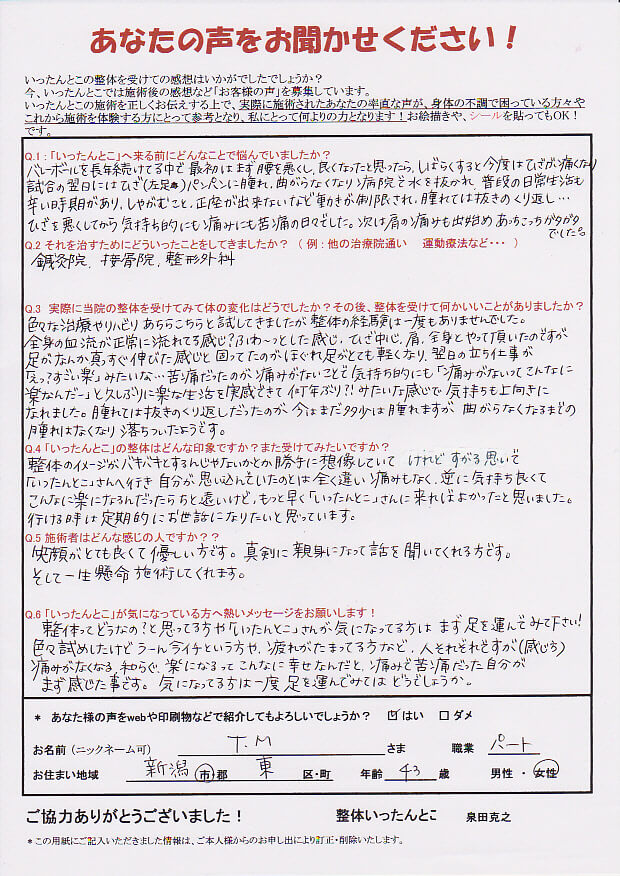 あなたの声をお聞かせください！
いったんとこの整体を受けての感想はいかがでしたでしょうか？
今、いったんとこでは施術後の感想など「お客様の声」を募集しています。
いったんとこの施術を正しくお伝えする上で、実際に施術されたあなたの率直な声が、身体の不調で困っている方々や
これから施術を体験する方にとって参考となり、私にとって何よりの力となります！お絵描きや、シールを貼ってもOK！
です。
Q.1：「いったんとこ」へ来る前にどんなことで悩んでいましたか？
バレーボールを長年続けてる中で最初はまず腰を悪くし、良くなったと思ったら、しばらくすると今度はひざが痛くなり
試合の翌日にはひざ(左足)パンパンに腫れ、曲がらなくなり病院で水を抜かれ、普段の日常生活も
辛い時期があり、しゃがむこと、正座が出来ないなど動きが制限され、腫れては抜きのくり返し…
ひざを悪くしてから気持ち的にも痛みにも苦痛の日々でした。次は肩の痛みも出始めあっちこっちガタガタ
でした。
Q.2 それを治すためにどういったことをしてきましたか？（例：他の治療院通い　運動療法など・・・）
鍼灸院、接骨院、整形外科
Q.3　実際に当院の整体を受けてみて体の変化はどうでしたか？その後、整体を受けて何かいいことがありましたか？
色々な治療やリハビリあちらこちらと試してきましたが整体の経験は一度もありませんでした。
全身の血流が正常に流れてる感じ？ふわ～っとした感じ。ひざ中心、肩、全身とやって頂いたのですが
足がなんか真っすぐ伸びた感じと固ってたのがほぐれ足がとても軽くなり、翌日の立ち仕事が
「えっ？すごい楽」みたいな…苦痛だったのが痛みがないことで気持ち的にも「痛みがないってこんなに
楽なんだー」と久しぶりに楽な生活を実感できて何年ぶり？！みたいな感じで気持ちも上向きに
なれました。腫れては抜きのくり返しだったのが今はまだ多少は腫れますが曲がらなくなるまでの
腫れはなくなり落ちついたようです。
Q.4「いったんとこ」の整体はどんな印象ですか？また受けてみたいですか？
整体のイメージがバキバキとするんじゃないかとか勝手に想像していて けれどすがる思いで
「いったんとこ」さんへ行き自分が思い込んでいたのとは全く違い痛みもなく、逆に気持ち良くて
こんなに楽になるんだったらちと遠いけど、もっと早く「いったんとこ」さんに来ればよかったと思いました。
行ける時は定期的にお世話になりたいと思っています。
Q.5 施術者はどんな感じの人ですか？？
笑顔がとても良くて優しい方です。真剣に親身になって話を聞いてくれる方です。
そして一生懸命施術してくれます。
Q.6「いったんとこ」が気になっている方へ熱いメッセージをお願いします！
整体ってどうなの？と思ってる方や「いったんとこ」さんが気になってる方はまず足を運んでみて下さい！
色々試めしたけどうーん今イチという方や、疲れがたまってる方など、人それぞれですが(感じ方)
痛みがなくなる、和らぐ、楽になるってこんなに幸せなんだと、痛みで苦痛だった自分が
まず感じた事です。気になってる方は一度足を運んでみてはどうでしょうか。
＊ あなた様の声をwebや印刷物などで紹介してもよろしいでしょうか？ ☑はい □ダメ
お名前（ニックネーム可） T.M さま 職業 パート
お住まい地域 新潟 市郡 東 区・町 年齢 43 歳 男性・女性
ご協力ありがとうございました！ 整体いったんとこ 泉田克之
＊この用紙にご記入いただきました情報は、ご本人様からのお申し出により訂正・削除いたします。